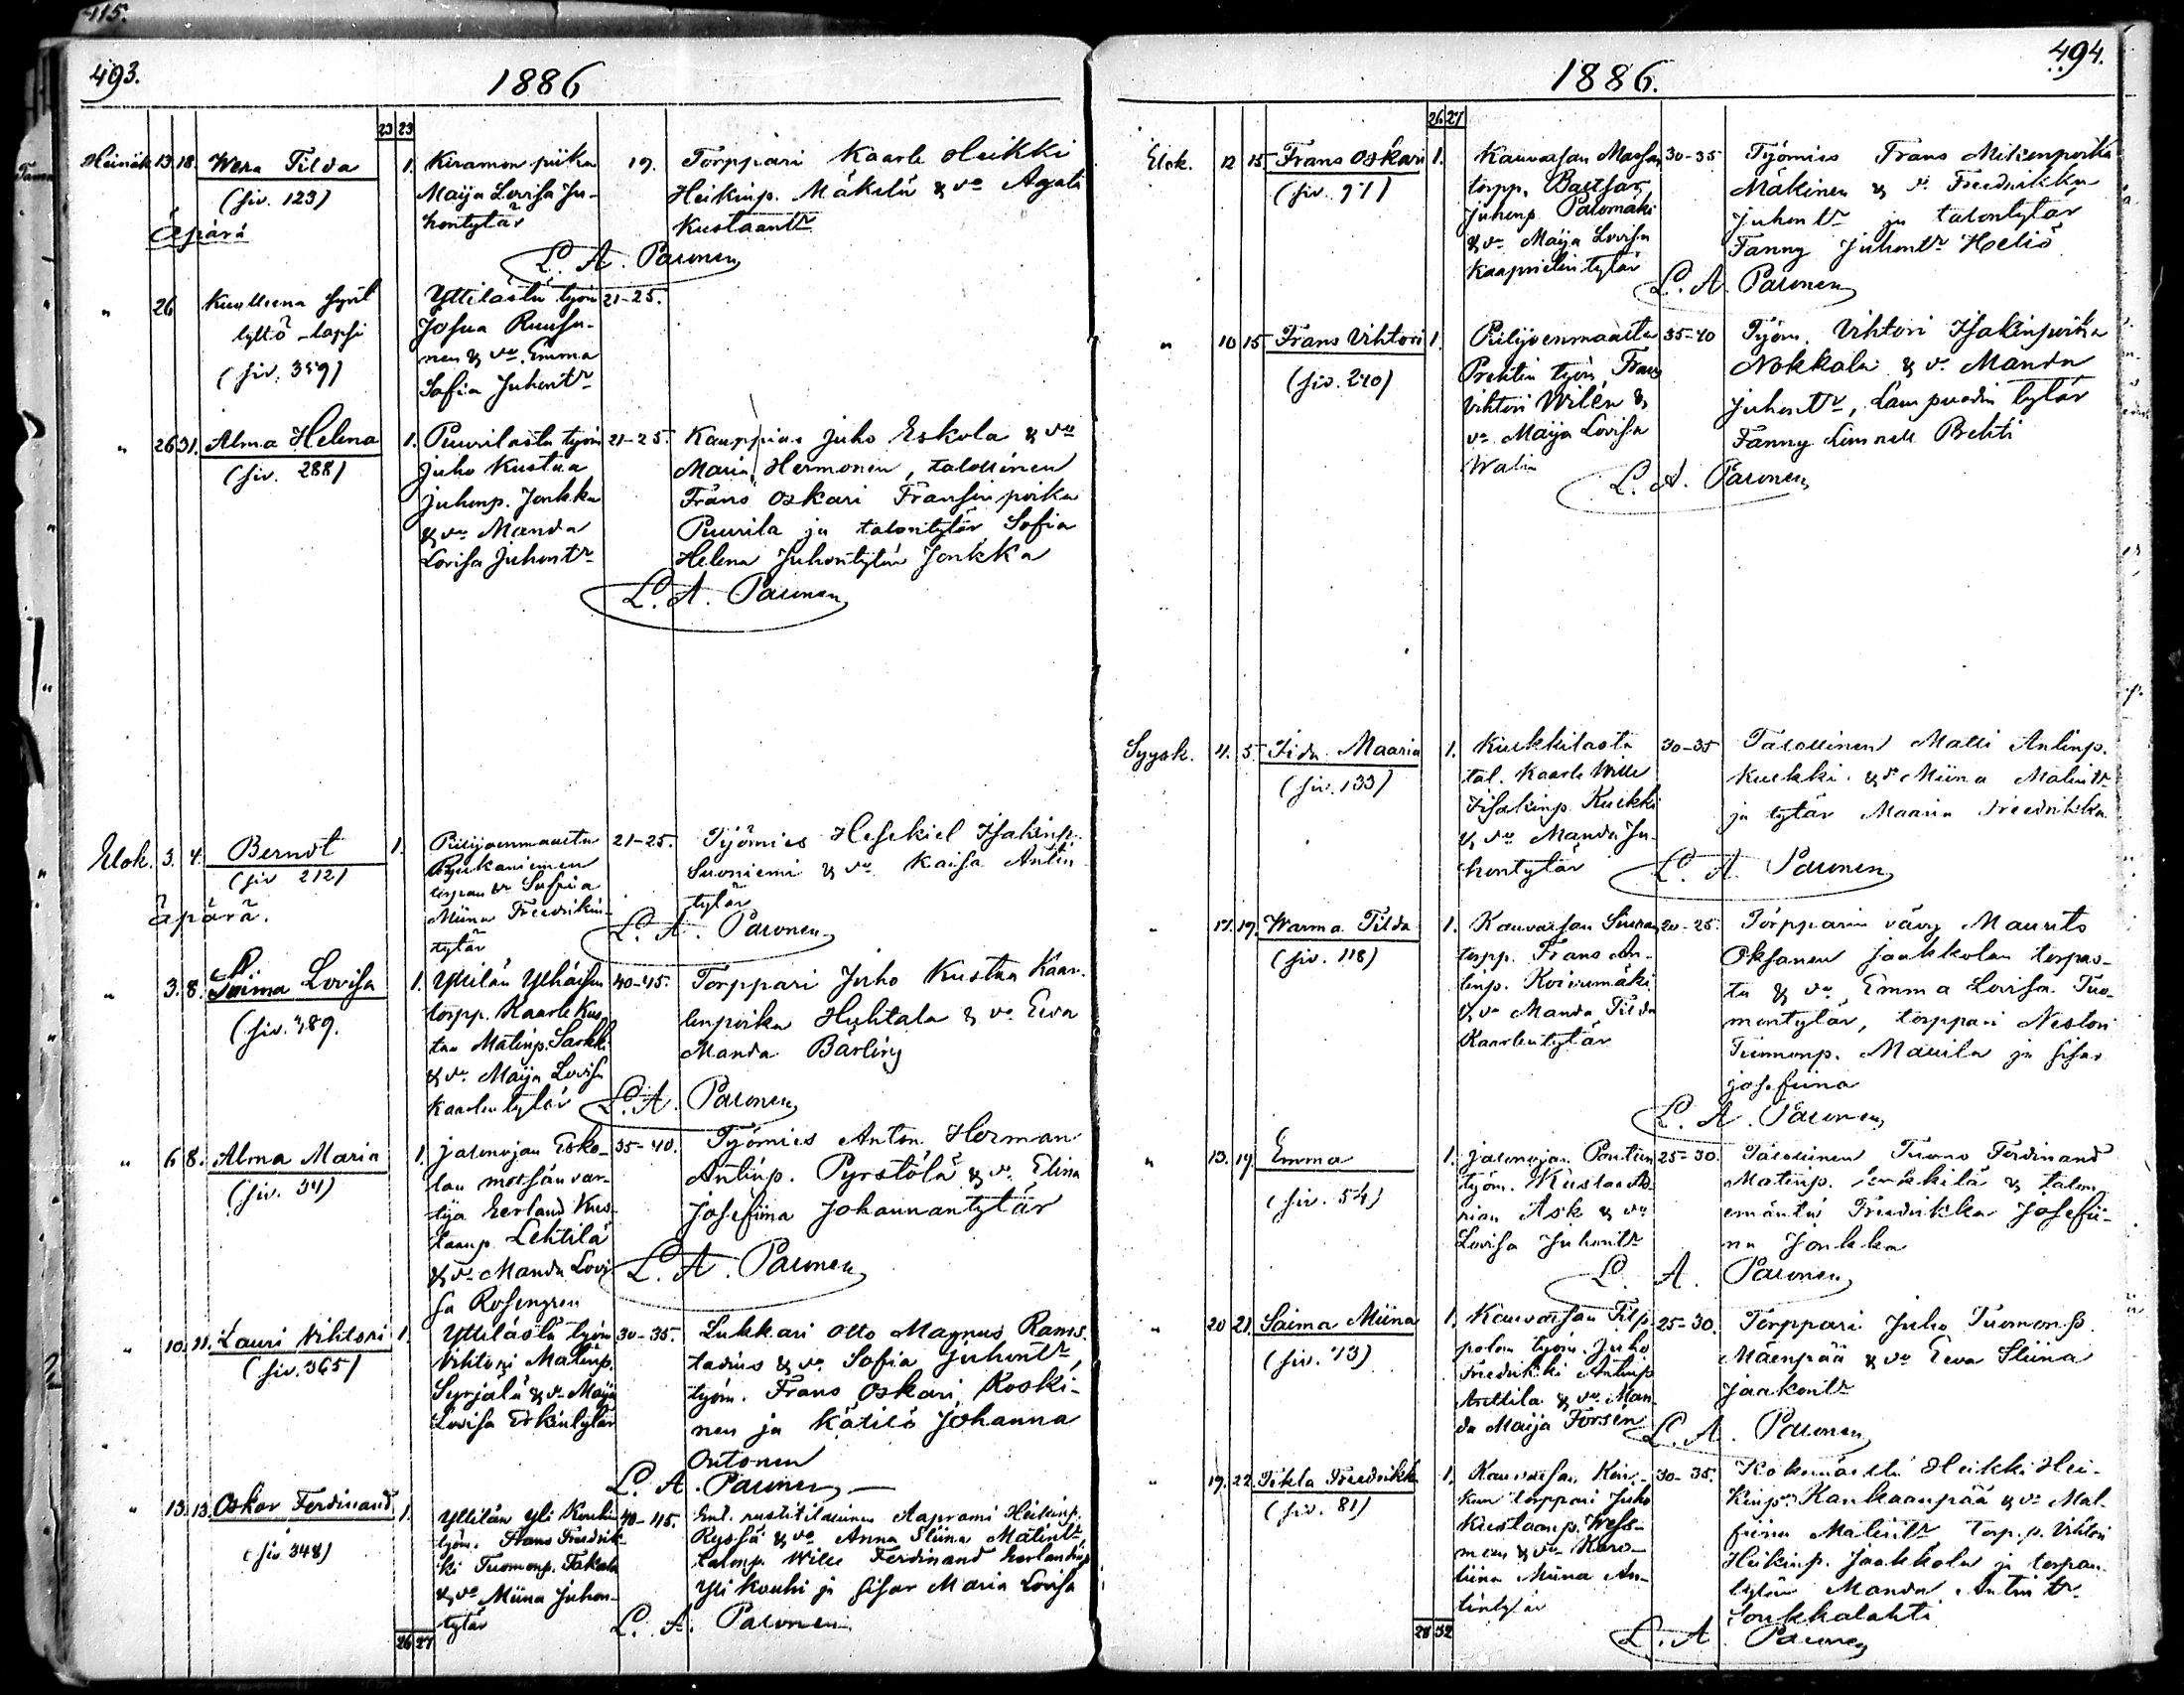 115.
493.
1886
23 23
Heinäk. 13. 18. Wera Tilda
(siv. 123)
Äpärä
1. Kiramon piika
Maija Lovisa Ju-
hontytär
19.
Torppari Kaarle Heikki
Heikinp. Mäkelä & vo Agata
Kustaantr
L. A. Paunen
" 26 Kuolleena synt
tyttö-lapsi
(siv. 359)
Yttilästä työm
Josua Ruusu-
nen & vo. Emma
Sofia Juhontr
21-25.
" 26 31. Alma Helena
(siv. 288)
1. Puurilasta työm
Juho Kustaa
Juhonp. Jonkka
& vo Manda
Lovisa Juhontr
21-25.
Kauppias Juho Eskola & vo
Maria Hermonen, talollinen
Frans Oskari Fransin poika
Puurila ja talontytär Sofia
Helena Juhontytär Jonkka
L. A. Paunen
Elok. 3. 4. Berndt
(siv 212)
äpärä.
1. Piilijoenmaasta
torpan tr Sofia
Miina Fredrikin-
tytär
21-25.
Työmies Hesekiel Isakinp.
Suoniemi & vo Kaisa Antin
tytär
L. A. Paunen
" 3. 8. Saima Lovisa
(siv. 389.
1. Yttilän
torpp. Kaarle Kus
taa Matinp. Sarkki
& vo. Maija Lovisa
Kaarlentytär
40-45.
Torppari Juho Kustaa Kaar-
lenpoika Huhtala & vo Eeva
Manda Bärling
L. A. Paunen
" 6 8. Alma Maria
(siv. 34)
1. Jalonojan Esko-
lan metsänvar-
tija Eerland Kus-
taanp. Lehtilä
& vo Manda Lovi
sa Rosengren
35-40.
Työmies Anton Herman
Antinp. Pyrstölä & vo. Elina
Josefiina Johannantytär
L. A. Paunen
" 10. 11. Lauri Vihtori
(siv. 365)
1. Yttilästä työm
Vihtori Matinp.
Syrjälä & vo Maija
Lovisa Erkintytär
30-35.
Lukkari Otto Magnus Rams-
tadius & vo Sofia Juhontr,
työm. Frans Oskari Koski-
nen ja kätilö Johanna
Ontonen
L. A. Paunen
" 13. 13. Oskar Ferdinand
(siv. 348)
1. Yttilän Yli Kouhin
työm. Frans Fredrik-
ki Tuomonp. Takala
& vo Miina Juhon-
tytär
40-45.
Ent. rustitilallinen Aaprami Heikinp.
Ryssä & vo Anna Stiina Matintr,
talonp. Wille Ferdinand Eerlandinp
Yli Kouhi ja sisar Maria Lovisa
L. A. Paunen
26 27
494.
1886.
26 27
Elok. 12 15 Frans Oskari
(siv. 97)
1. Kauvatsan
torpp. Baltsar
Juhonp Palomäki
& vo Maija Lovisa
Kaaprielin tytär
30-35
Työmies Frans Mikonpoika
Mäkinen & vo Fredrikka
Juhontr ja talontytär
Fanny Juhontr Heliö
L. A. Paunen
" 10 15 Frans Vihtori
(siv. 240)
1. Piilijoenmaasta
Prehtin työm. Frans
Vihtori Wilén &
vo Maija Lovisa
Walin
35-40
Työm. Vihtori Isakinpoika
Nokkala & vo Manda
Juhontr, Lampuodin tytär
Fanny Prehti
L. A. Paunen
Syysk. 4. 5. Iida Maaria
(siv. 133)
1. Kuukkilasta
tal. Kaarle Wille
Iisakinp. Kuukki
& vo Manda Ju-
hontytär
30-35
Talollinen Matti Antinp.
Kuukki & vo Miina Matintr
ja tytär Maaria Fredrikka
L. A. Paunen
" 17. 19. Warma Tilda
(siv. 118)
1. Kauvatsan
torpp. Frans An-
tinp. Koivumäki
& vo Manda Tilda
Kaarlentytär
20-25.
Torpparin vävy Maurits
Oksanen Jaakkolan torpas-
ta & vo Emma Lovisa Tuo-
montytär, torppari Nestori
Tuomonp. Mattila ja sisar
Josefiina
L. A. Paunen
" 13. 19. Emma
(siv. 54)
1. Jalonojan
työm. Kustaa Ad-
rian Ask & vo
Lovisa Juhontr
25-30.
Talollinen Tuomo Ferdinand
Matinp. & talon
emäntä Fredrikka Josefii-
na Jonkka
L. A. Paunen
" 20 21 Saima Miina
(siv. 73)
1. Kauvatsan Filp-
polan työm. Juho
Fredrikki Antinp
Anttila & vo Man
da Maija Forsén
25-30.
Torppari Juho Tuomonp.
Mäenpää & vo Eeva Stiina
Jaakontr
L. A. Paunen
" 19. 22 Tekla Fredrikka
(siv. 81)
1. Kauvatsan
torppari Juho
Kustaanp. Wess-
man & vo Karo-
liina Miina An-
tintytär
30-35.
Kokemäeltä Heikki Hei-
kinp. Kankaanpää & vo Mat-
Matintr torp.p. Vihtori
Heikinp. Jaakkola ja torpan
tytär Manda Antintr
Soukkalahti
L. A. Paunen
28 32